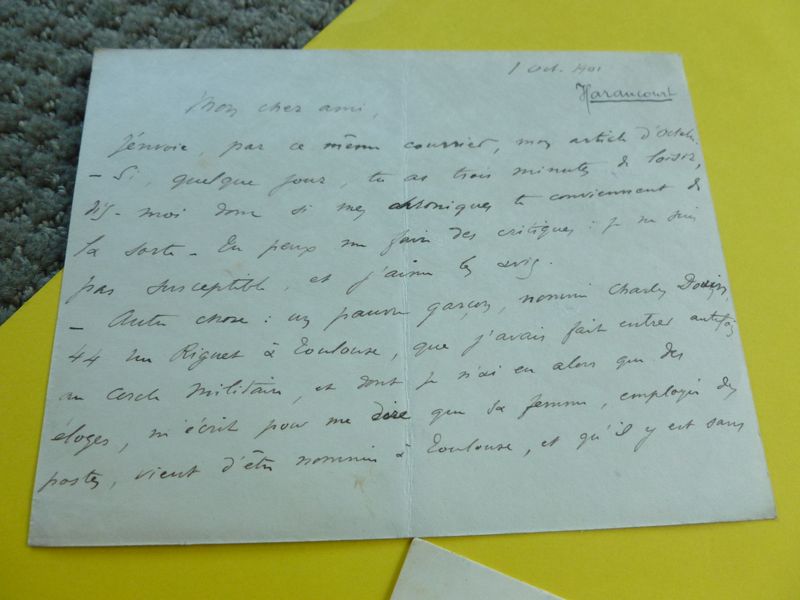 1 Oct. 1901
Haraucourt
Mon cher ami,
J'envoie, par ce même courrier, mon article d'octobre.
- Si, quelque jour, tu as trois minutes de loisir,
dis-moi donc si mes chroniques te conviennent de
la sorte - Tu peux me faire des critiques : je ne suis
pas susceptible, et j'aime les avis.
- Autre chose : un pauvre garçon, nommé Charles
44 rue Riquet à Toulouse, que j'avais fait entrer autrefois
au Cercle Militaire, et dont je n'ai eu alors que des
éloges, m'écrit pour me dire que sa femme, employée des
postes, vient d'être nommée à Toulouse, et qu'il y est sans